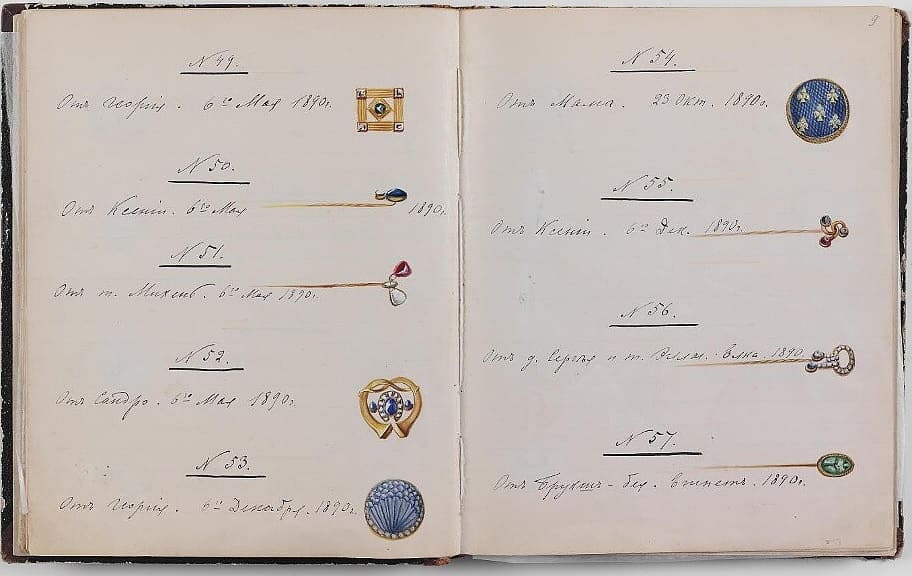 N 49.
Отъ Георгія. 6го Мая 1890г.
N 50.
Отъ Ксеніи. 6го Мая 1890г.
N 51.
Отъ т. Михень. 6го Мая 1890г.
N 52.
Отъ Сандро. 6го Мая 1890г.
N 53.
Отъ Георгія. 6го Декабря. 1890г.
9
N 54.
Отъ Мама. 23 Окт. 1890г.
N 55.
Отъ Ксеніи. 6го Дек. 1890г.
N 56.
Отъ д. Сергѣя и т. Эллы. Елка. 1890
N 57.
Отъ Бругшъ-бея. Египетъ. 1890г.